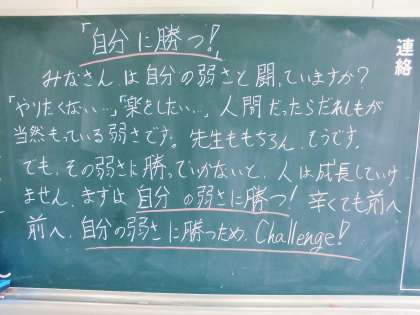 「自分に勝つ!」
みなさんは自分の弱さと闘っていますか?
「やりたくない…」「楽をしたい…」人間だったらだれしもが
当然もっている弱さです。先生ももちろん、そうです。
でも、その弱さに勝っていかないと、人は成長していけ
ません。まずは自分の弱さに勝つ!辛くても前へ
前へ、自分の弱さに勝つため、Challenge!
連絡